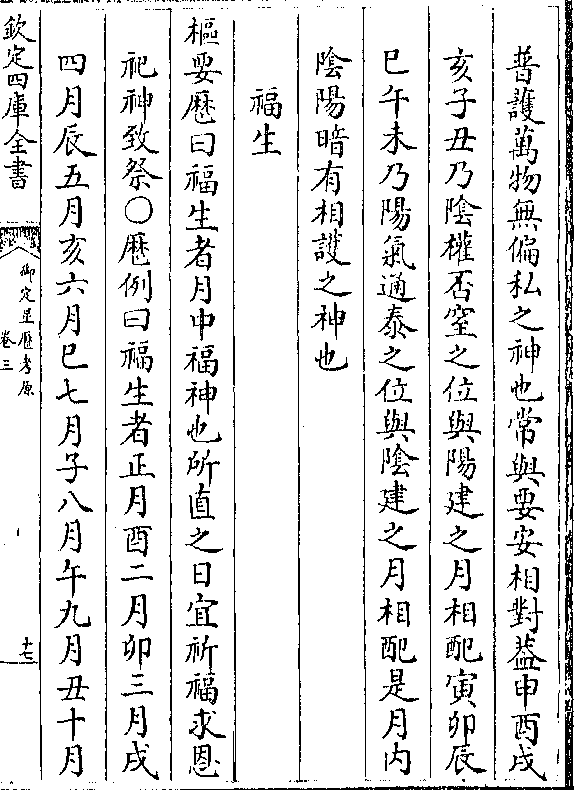 普護萬物無偏私之神也常與要安相對葢申酉戌
亥子丑乃陰權否窒之位與陽建之月相配寅卯辰
巳午未乃陽氣通泰之位與陰建之月相配是月内
陰陽暗有相護之神也
福生
樞要歴曰福生者月中福神也所直之日宜祈福求恩
祀神致祭〇歴例曰福生者正月酉二月卯三月戌
四月辰五月亥六月巳七月子八月午九月丑十月
欽定四庫全書
御定星歴考原
卷三
十七